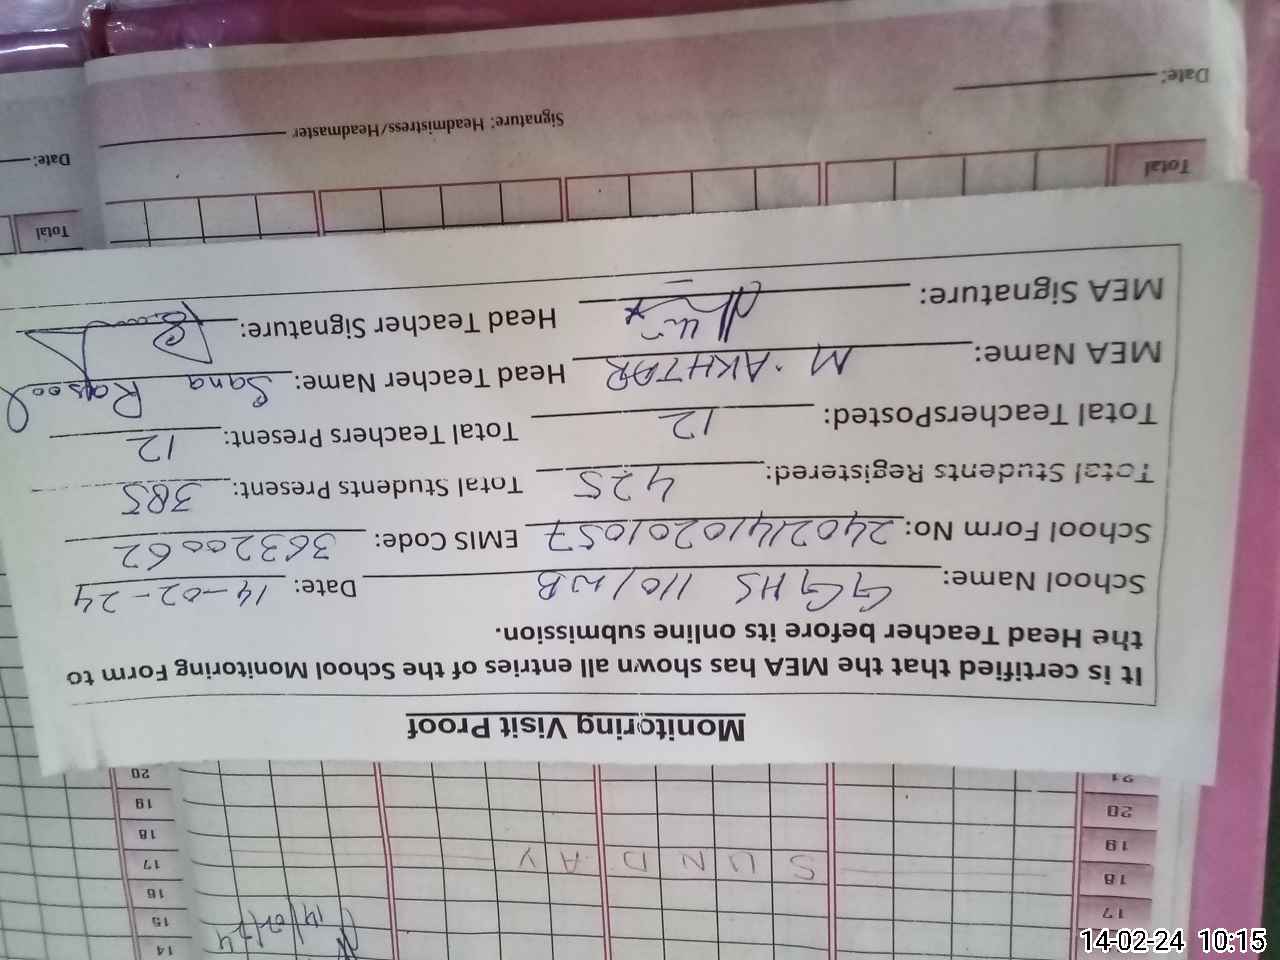 Monitoring Visit Proof
It is certified that the MEA has shown all entries of the School Monitoring Form to
the Head Teacher before its online submission.
School Name: GGHS 110/WB Date: 14-02-24
School Form No: 2402141020201057 EMIS Code: 36320062
Total Students Registered: 425 Total Students Present: 385
Total TeachersPosted: 12 Total Teachers Present: 12
MEA Name: M. AKHTAR Head Teacher Name: Sana Rasool
MEA Signature: Head Teacher Signature:
Total
Signature: Headmistress/Headmaster
Date:
Total
Date:
14
15
16
17
18
19
20
17
18
19
20
21
SUNDAY
14/02/24
14-02-24 10:15